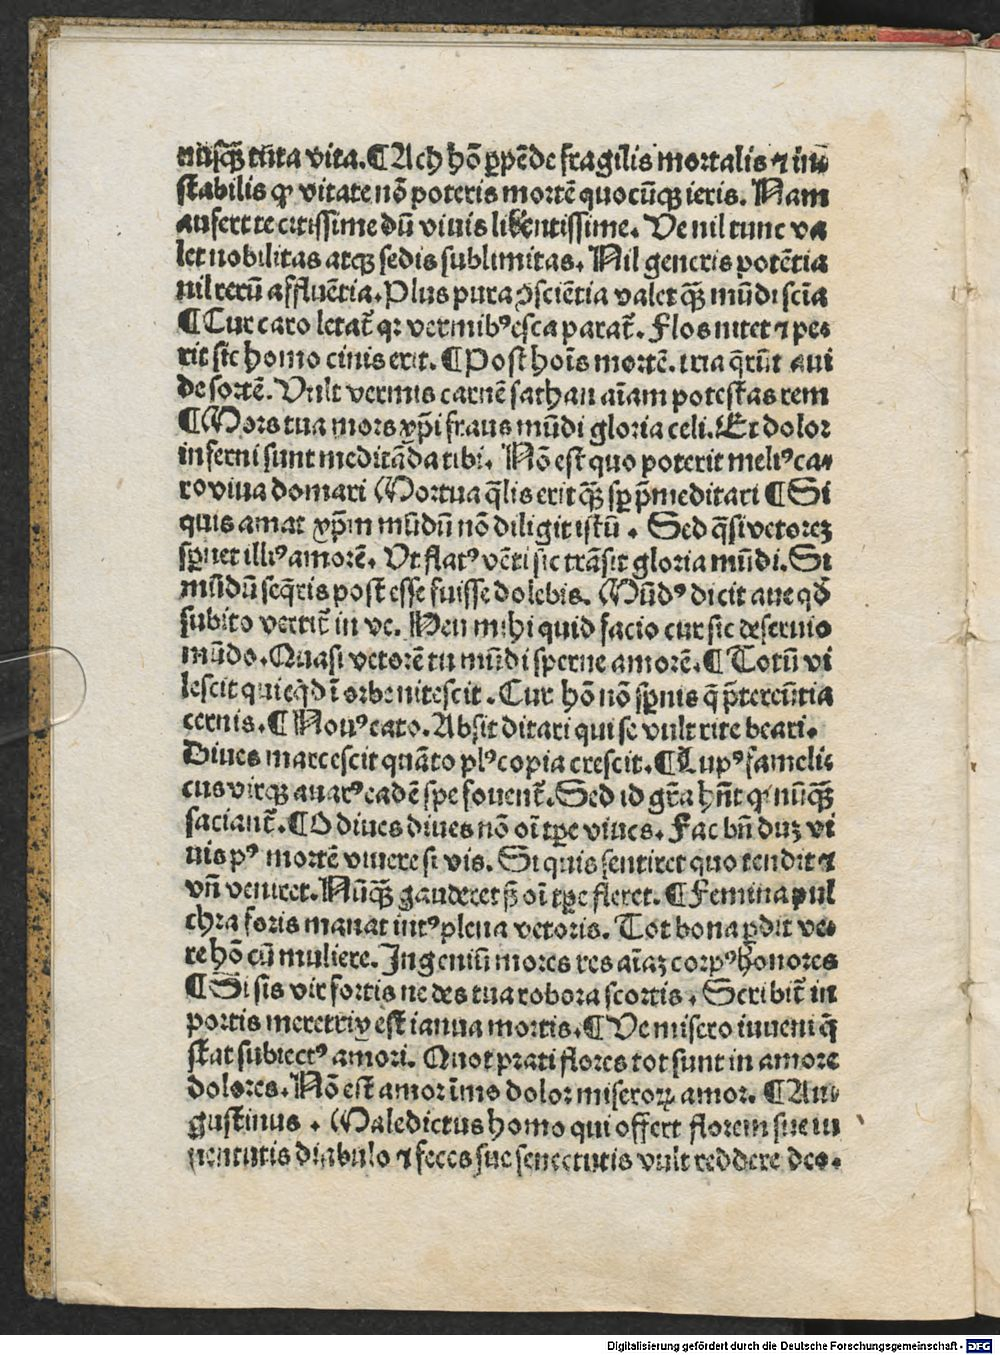 nusꝙ̃ tuta vita. ¶ Ach hõ ꝑpẽde fragilis mortalis ⁊ in⸗
stabilis ꝙ vitare nõ poteris mortẽ quocũqꝫ ieris. Nam
aufert te citissime dũ viuis libentissime. Ve nil tunc va
let nobilitas atqꝫ sedis sublimitas. Nil generis potẽtia
nil rerũ affluẽtia. Plus pura ↄsciẽtia valet qꝫ̃ mũdi scĩa
¶ Cur caro letat̃ qꝛ vermibꝰ esca parat̃. Flos nitet ⁊ pe⸗
rit sic homo cinis erit. ¶ Post hoĩs mortẽ. tria q̃rũt aui
de sortẽ. Vult vermis carnẽ sathan aĩam potestas rem
¶ Mors tua mors xp̃i fraus mũdi gloria celi. Et dolor
inferni sunt meditãda tibi. Nõ est quo poterit meliꝰ ca⸗
ro viua domari Mortua q̃lis erit qꝫ̃ sꝑ p̃meditari ¶ Si
quis amat xp̃m mũdũ nõ diligit istũ. Sed q̃si vetorez
sp̃uet illiꝰ amorẽ. Vt flatꝰ vẽti sic trãsit gloria mũdi. Si
mũdũ seq̃ris post esse fuisse dolebis. Mũdꝰ dicit aue qđ
subito vertit̃ in ve. Heu mihi quid facio cur sic deseruio
mũdo. Quasi vetorẽ tu mũdi sperne amorẽ. ¶ Totũ vi
lescit quicq̃d ĩ orbe nitescit. Cur hõ nõ sp̃nis q̃ p̃tereũtia
cernis. ¶ Nouꝰ cato. Absit ditari qui se vult rite beari.
Diues marcescit quãto plꝰ copia crescit. ¶ Lupꝰ fameli⸗
cus virqꝫ auarꝰ eadẽ spe fouent̃. Sed id gr̃a hñt ꝙ nũqꝫ̃
saciant̃. ¶ O diues diues nõ oĩ tꝑe viues. Fac bñ duꝫ vi
uis pꝰ mortẽ viuere si vis. Si quis sentiret quo tendit ⁊
vñ veniret. Nũqꝫ̃ gauderet sꝫ oĩ tꝑe fleret. ¶ Femina pul
chra foris manat intꝰ plena vetoris. Tot bona ꝑdit ve⸗
re hõ cũ muliere. Ingeniũ mores res aĩaꝫ corpꝰ honores
¶ Si sis vir fortis ne des tua robora scortis. Scribit̃ in
portis meretrix est ianua mortis. ¶ Ve misero iuueni q̃
stat subiectꝰ amori. Quot prati flores tot sunt in amore
dolores. Nõ est amor ĩmo dolor miseroꝝ amor. ¶ Au⸗
gustinus. Maledictus homo qui offert florem sue iu
uentutis diabulo ⁊ feces sue senectutis vult reddere deo.
Digitalisierung gefördert durch die Deutsche Forschungsgemeinschaft - DFG